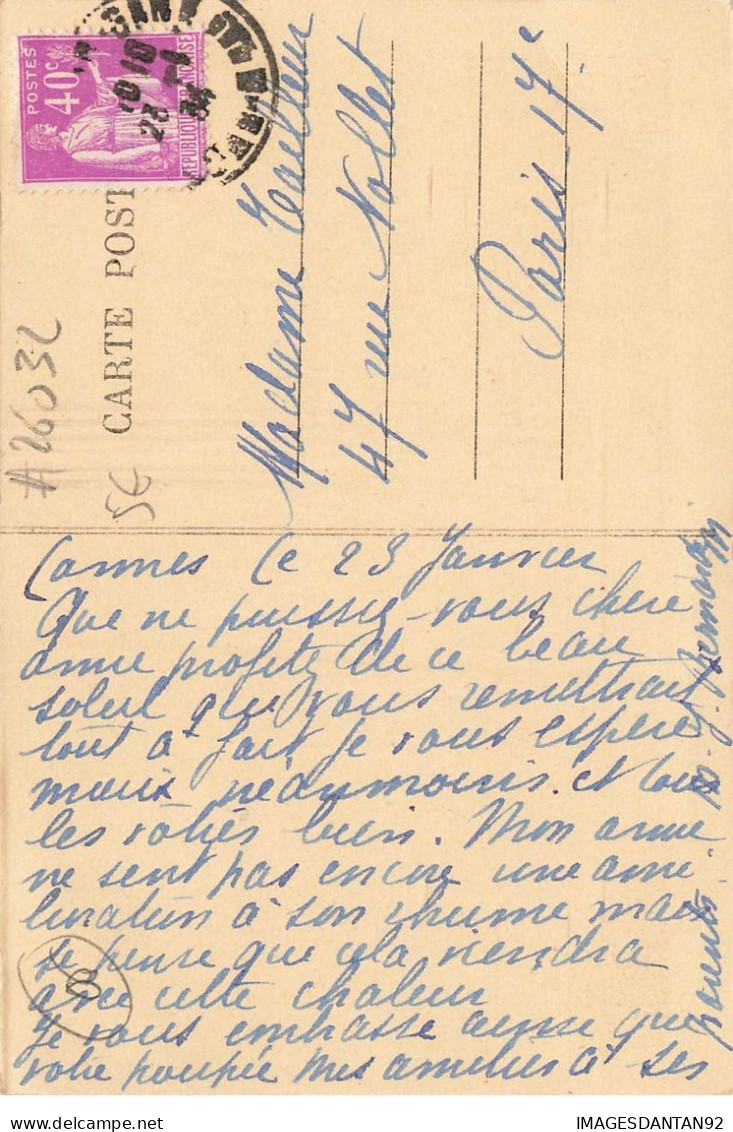 POSTES
40c
REPUBLIQUE FRANÇAISE
10 10
23 -1
34
CARTE POST
#26032
5€
Madame
47 rue Nollet
Paris 17e
Cannes le 23 Janvier
Que ne puissiez-vous chere
amie profiter de ce beau
soleil qui vous remettrait
tout à fait Je vous espere
mieux neanmoins et tous
les vôtres bien. Mon amie
ne sent pas encore une amé-
lioration à son rhume mais
je pense que cela viendra
avec cette chaleur
Je vous embrasse ainsi que
votre poupée Mes amitiés à ses
parents
8
IMAGESDANTAN92